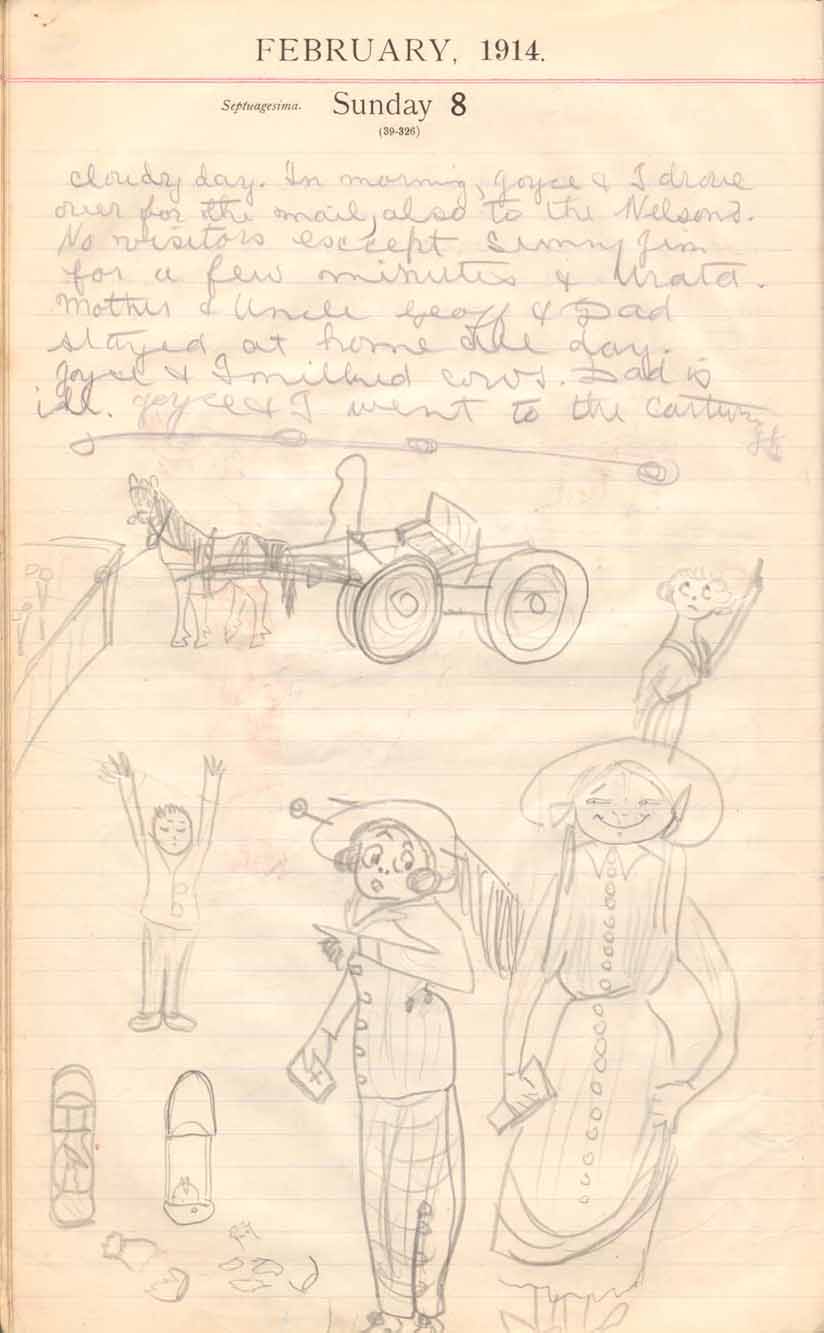 FEBRUARY, 1914.
Septuagesima. Sunday 8
(39-326)
cloudy day. In morning, Joyce & I drove
over for the mail, also to the Nelsons.
No visitors exccept Sunny Jim
for a few minutes & Urata.
Mother & Uncle Geoff & Dad
stayed at home all day.
Joyce & I milked cows. Dad is
ill. Joyce & I went to the